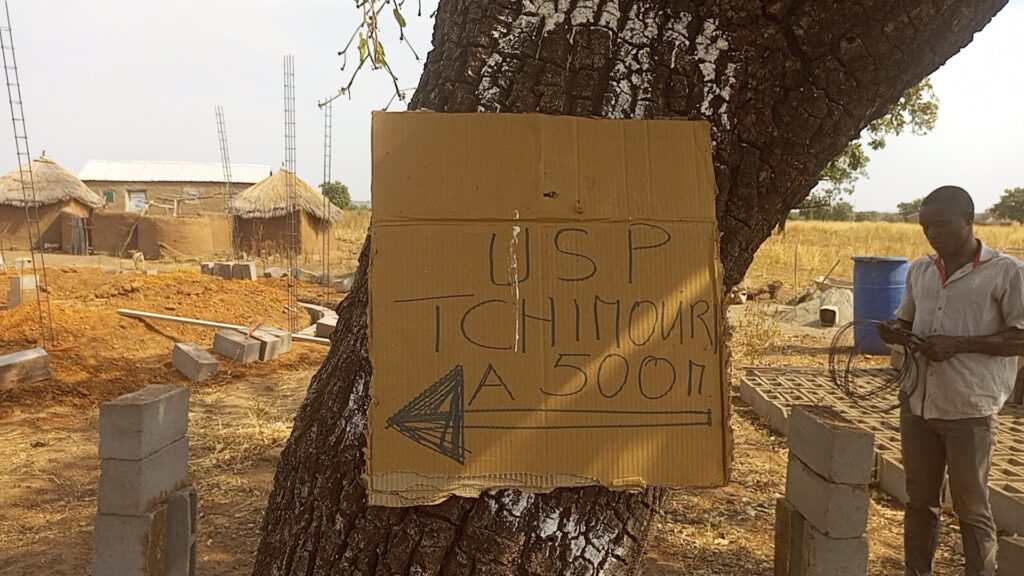 USP
TCHIMOURI
A 500m